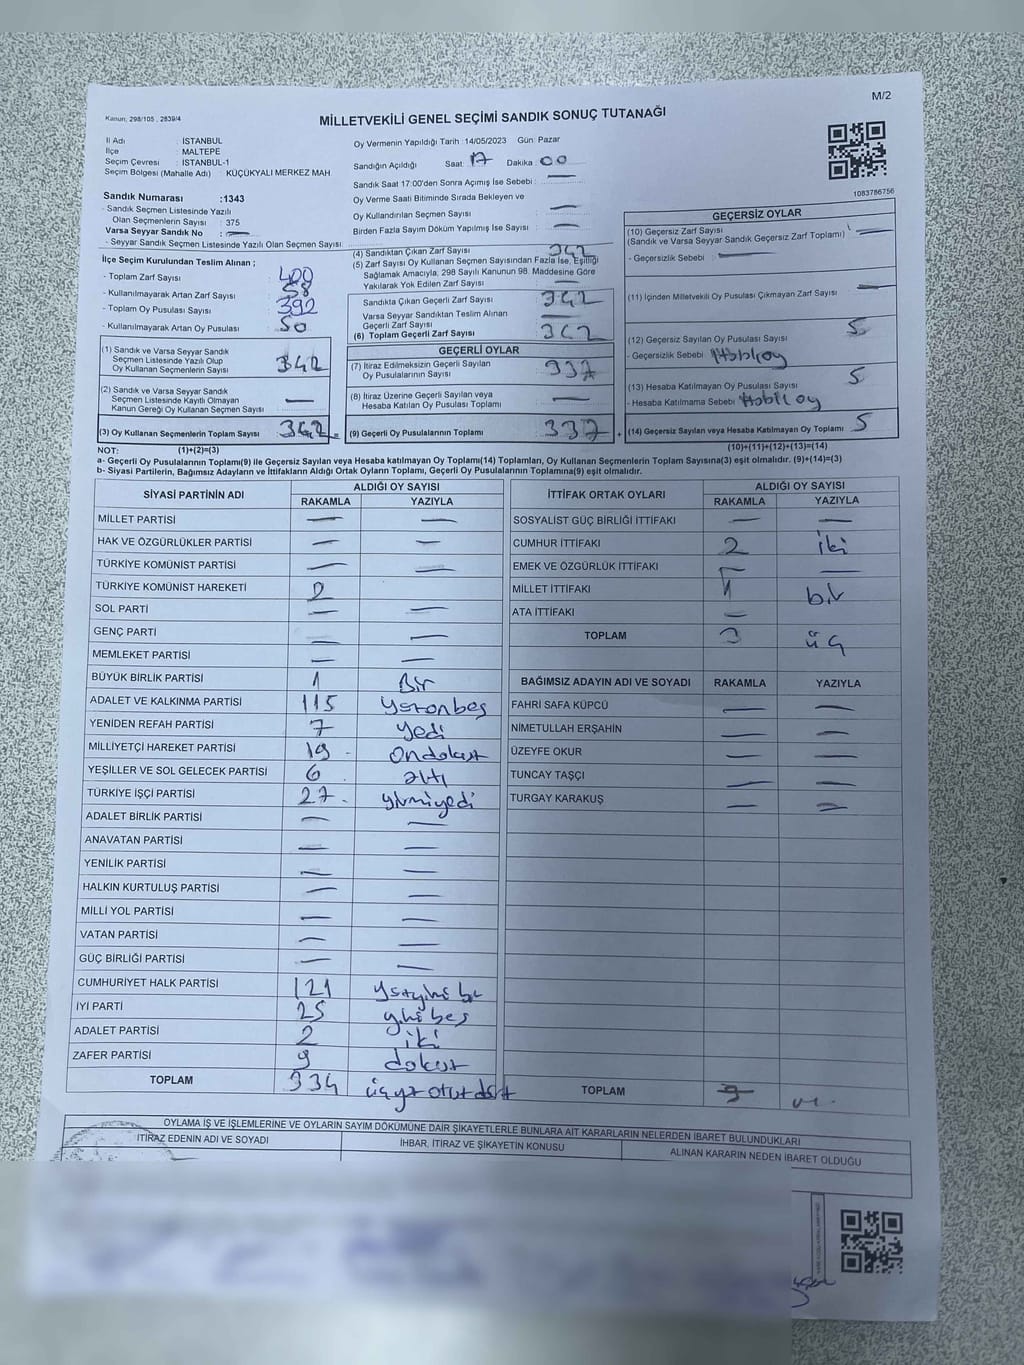 M/2
Kanun, 298/105 , 2839/4
MİLLETVEKİLİ GENEL SEÇİMİ SANDIK SONUÇ TUTANAĞI
İl Adı : İSTANBUL
İlçe : MALTEPE
Seçim Çevresi : İSTANBUL-1
Seçim Bölgesi (Mahalle Adı) : KÜÇÜKYALI MERKEZ MAH.
Sandık Numarası :1343
- Sandık Seçmen Listesinde Yazılı
Olan Seçmenlerin Sayısı : 375
Varsa Seyyar Sandık No : —
- Seyyar Sandık Seçmen Listesinde Yazılı Olan Seçmen Sayısı:
İlçe Seçim Kurulundan Teslim Alınan ;
- Toplam Zarf Sayısı : 400
- Kullanılmayarak Artan Zarf Sayısı : 58
- Toplam Oy Pusulası Sayısı : 392
- Kullanılmayarak Artan Oy Pusulası : 50
(1) Sandık ve Varsa Seyyar Sandık
Seçmen Listesinde Yazılı Olup
Oy Kullanan Seçmenlerin Sayısı : 342
(2) Sandık ve Varsa Seyyar Sandık
Seçmen Listesinde Kayıtlı Olmayan
Kanun Gereği Oy Kullanan Seçmen Sayısı : —
(3) Oy Kullanan Seçmenlerin Toplam Sayısı : 342
Oy Vermenin Yapıldığı Tarih :14/05/2023 Gün: Pazar
Sandığın Açıldığı Saat: 17 Dakika : 00
Sandık Saat 17:00'den Sonra Açımış İse Sebebi : —
Oy Verme Saati Bitiminde Sırada Bekleyen ve
Oy Kullandırılan Seçmen Sayısı : —
Birden Fazla Sayım Döküm Yapılmış İse Sayısı : —
(4) Sandıktan Çıkan Zarf Sayısı : 342
(5) Zarf Sayısı Oy Kullanan Seçmen Sayısından Fazla İse, Eşitliği
Sağlamak Amacıyla, 298 Sayılı Kanunun 98. Maddesine Göre
Yakılarak Yok Edilen Zarf Sayısı : —
Sandıkta Çıkan Geçerli Zarf Sayısı : 342
Varsa Seyyar Sandıktan Teslim Alınan
Geçerli Zarf Sayısı : —
(6) Toplam Geçerli Zarf Sayısı : 342
GEÇERLİ OYLAR
(7) İtiraz Edilmeksizin Geçerli Sayılan
Oy Pusulalarının Sayısı : 337
(8) İtiraz Üzerine Geçerli Sayılan veya
Hesaba Katılan Oy Pusulası Toplamı : —
(9) Geçerli Oy Pusulalarının Toplamı : 337
1083786756
GEÇERSİZ OYLAR
(10) Geçersiz Zarf Sayısı : —
(Sandık ve Varsa Seyyar Sandık Geçersiz Zarf Toplamı)
- Geçersizlik Sebebi : —
(11) İçinden Milletvekili Oy Pusulası Çıkmayan Zarf Sayısı : —
(12) Geçersiz Sayılan Oy Pusulası Sayısı : 5
- Geçersizlik Sebebi :
(13) Hesaba Katılmayan Oy Pusulası Sayısı : 5
- Hesaba Katılmama Sebebi :
(14) Geçersiz Sayılan veya Hesaba Katılmayan Oy Toplamı : 5
NOT: (1)+(2)=(3) (10)+(11)+(12)+(13)=(14)
a- Geçerli Oy Pusulalarının Toplamı(9) ile Geçersiz Sayılan veya Hesaba katılmayan Oy Toplamı(14) Toplamları, Oy Kullanan Seçmenlerin Toplam Sayısına(3) eşit olmalıdır. (9)+(14)=(3)
b- Siyasi Partilerin, Bağımsız Adayların ve İttifakların Aldığı Ortak Oyların Toplamı, Geçerli Oy Pusulalarının Toplamına(9) eşit olmalıdır.
SİYASİ PARTİNİN ADI ALDIĞI OY SAYISI
RAKAMLA YAZIYLA
MİLLET PARTİSİ — —
HAK VE ÖZGÜRLÜKLER PARTİSİ — —
TÜRKİYE KOMÜNİST PARTİSİ — —
TÜRKİYE KOMÜNİST HAREKETİ 2
SOL PARTİ — —
GENÇ PARTİ — —
MEMLEKET PARTİSİ — —
BÜYÜK BİRLİK PARTİSİ 1 Bir
ADALET VE KALKINMA PARTİSİ 115 yüzonbeş
YENİDEN REFAH PARTİSİ 7 yedi
MİLLİYETÇİ HAREKET PARTİSİ 19 ondokuz
YEŞİLLER VE SOL GELECEK PARTİSİ 6 altı
TÜRKİYE İŞÇİ PARTİSİ 27 yirmiyedi
ADALET BİRLİK PARTİSİ — —
ANAVATAN PARTİSİ — —
YENİLİK PARTİSİ — —
HALKIN KURTULUŞ PARTİSİ — —
MİLLİ YOL PARTİSİ — —
VATAN PARTİSİ — —
GÜÇ BİRLİĞİ PARTİSİ — —
CUMHURİYET HALK PARTİSİ 121
İYİ PARTİ 25
ADALET PARTİSİ 2 iki
ZAFER PARTİSİ 9 dokuz
TOPLAM 334
İTTİFAK ORTAK OYLARI ALDIĞI OY SAYISI
RAKAMLA YAZIYLA
SOSYALİST GÜÇ BİRLİĞİ İTTİFAKI — —
CUMHUR İTTİFAKI 2 iki
EMEK VE ÖZGÜRLÜK İTTİFAKI —
MİLLET İTTİFAKI 1 bir
ATA İTTİFAKI —
TOPLAM 3 üç
BAĞIMSIZ ADAYIN ADI VE SOYADI RAKAMLA YAZIYLA
FAHRİ SAFA KÜPCÜ — —
NİMETULLAH ERŞAHİN — —
ÜZEYFE OKUR — —
TUNCAY TAŞÇI — —
TURGAY KARAKUŞ — —
TOPLAM
OYLAMA İŞ VE İŞLEMLERİNE VE OYLARIN SAYIM DÖKÜMÜNE DAİR ŞİKAYETLERLE BUNLARA AİT KARARLARIN NELERDEN İBARET BULUNDUKLARI
İTİRAZ EDENİN ADI VE SOYADI İHBAR, İTİRAZ VE ŞİKAYETİN KONUSU ALINAN KARARIN NEDEN İBARET OLDUĞU